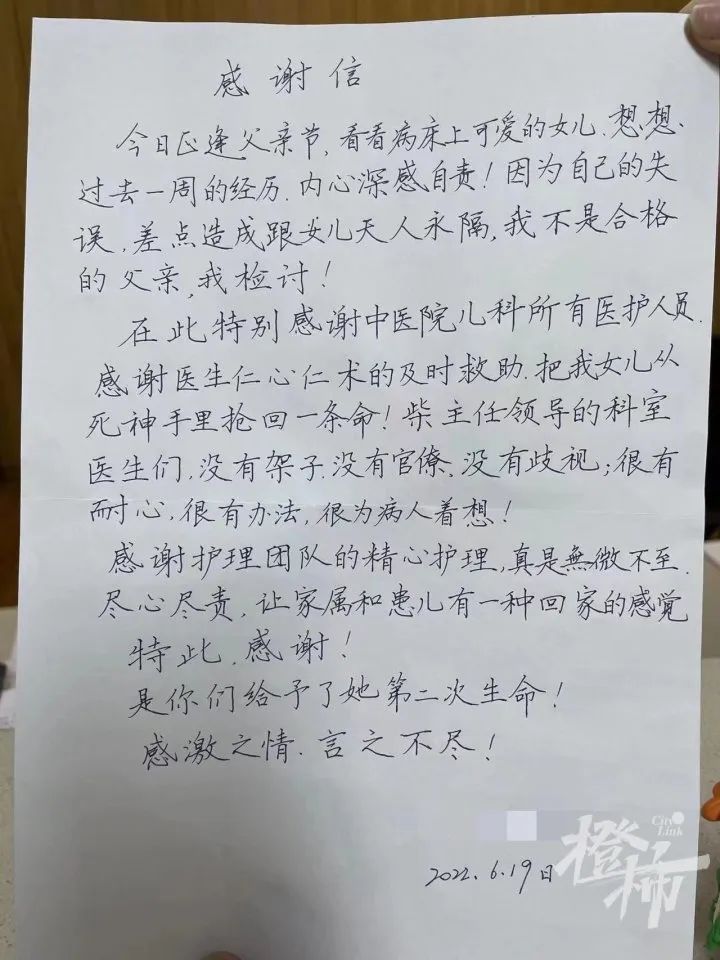 感谢信
今日正逢父亲节,看看病床上可爱的女儿.想想.
过去一周的经历.内心深感自责!因为自己的失
误,差点造成跟女儿天人永隔,我不是合格
的父亲,我检讨!
在此特别感谢中医院儿科所有医护人员.
感谢医生仁心仁术的及时救助.把我女儿从
死神手里抢回一条命!柴主任领导的科室
医生们,没有架子.没有官僚、没有歧视;很有
耐心,很有办法,很为病人着想!
感谢护理团队的精心护理,真是無微不至.
尽心尽责,让家属和患儿有一种回家的感觉
特此.感谢!
是你们给予了她第二次生命!
感激之情.言之不尽!
2022.6.19日
City Link
橙柿